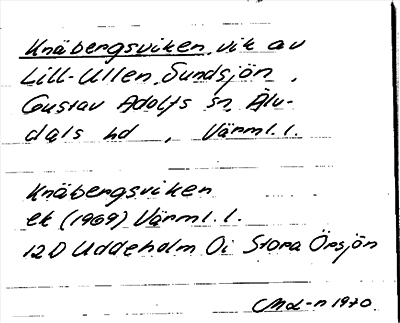 Knäbergsviken, vik av
Lill-Ullen, Sundsjön,
Gustav Adolfs sn, Älv-
dals hd, Värml. l.
Knäbergsviken
ek (1969) Värml. l.
12 D Uddeholm Oi Stora Örsjön
Md-n 1970